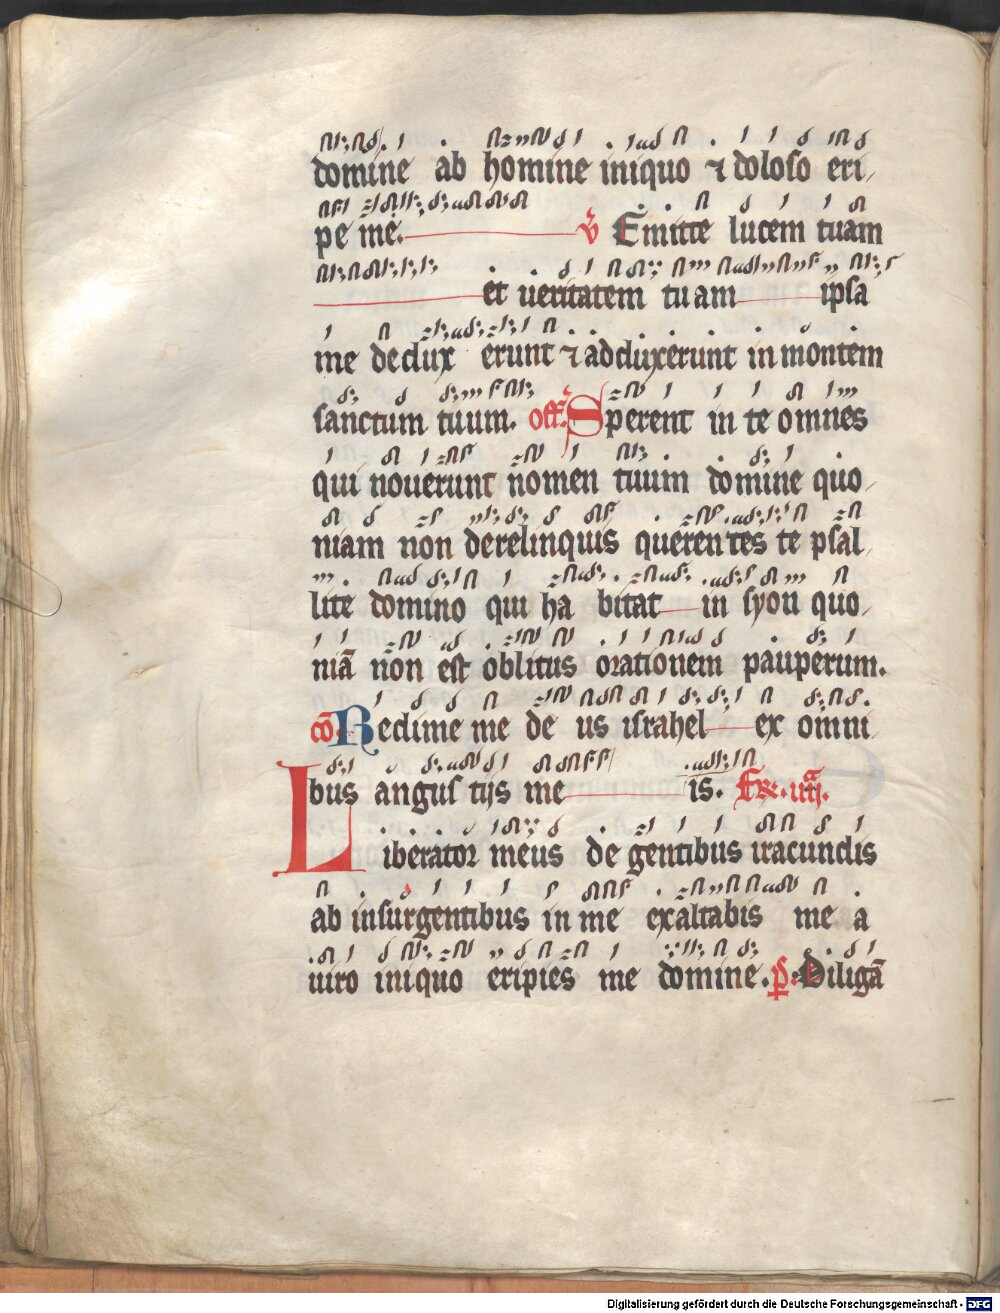 domine ab homine iniquo ⁊ doloso eri
pe me. ℣ Emitte lucem tuam
et ueritatem tuam ipsa
me dedux erunt ⁊ adduxerunt in montem
sanctum tuum. off. Sperent in te omnes
qui nouerunt nomen tuum domine quo
niam non derelinquis querentes te psal
lite domino qui ha bitat in syon quo
niā non est oblitus orationem pauperum.
cō. Redime me de us israhel ex omni
bus angus tijs me is.
Liberator meus de gentibus iracundis
ab insurgentibus in me exaltabis me a
uiro iniquo eripies me domine. p̄. Diligā
Digitalisierung gefördert durch die Deutsche Forschungsgemeinschaft - DFG